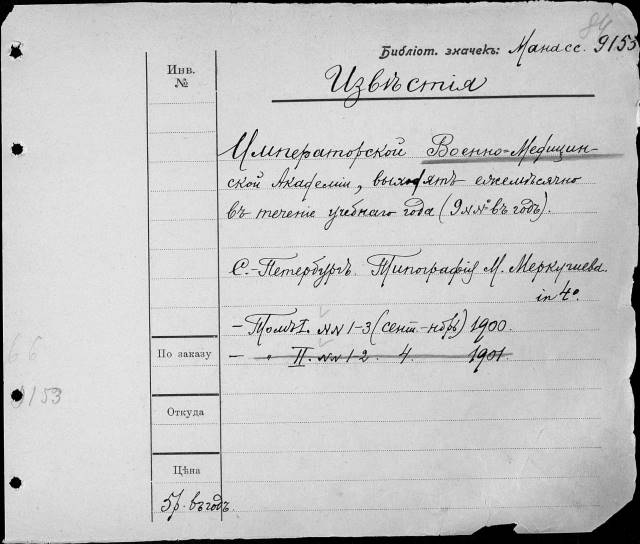 84
Библіот. значекъ: Манасс. 9153
Инв.
№
Извѣстія
Императорской Военно-Медицин-
ской Академіи, выходятъ ежемѣсячно
въ теченіе учебнаго года (9 №№ въ годъ).
С.-Петербургъ. Типографія М. Меркушева.
in 4º.
- Томъ I. №№ 1-3 (сент.-нбрь) 1900.
По заказу
- " II. №№ 1-2. 4. 1901.
66
9153
Откуда
Цѣна
5 р. въ годъ.